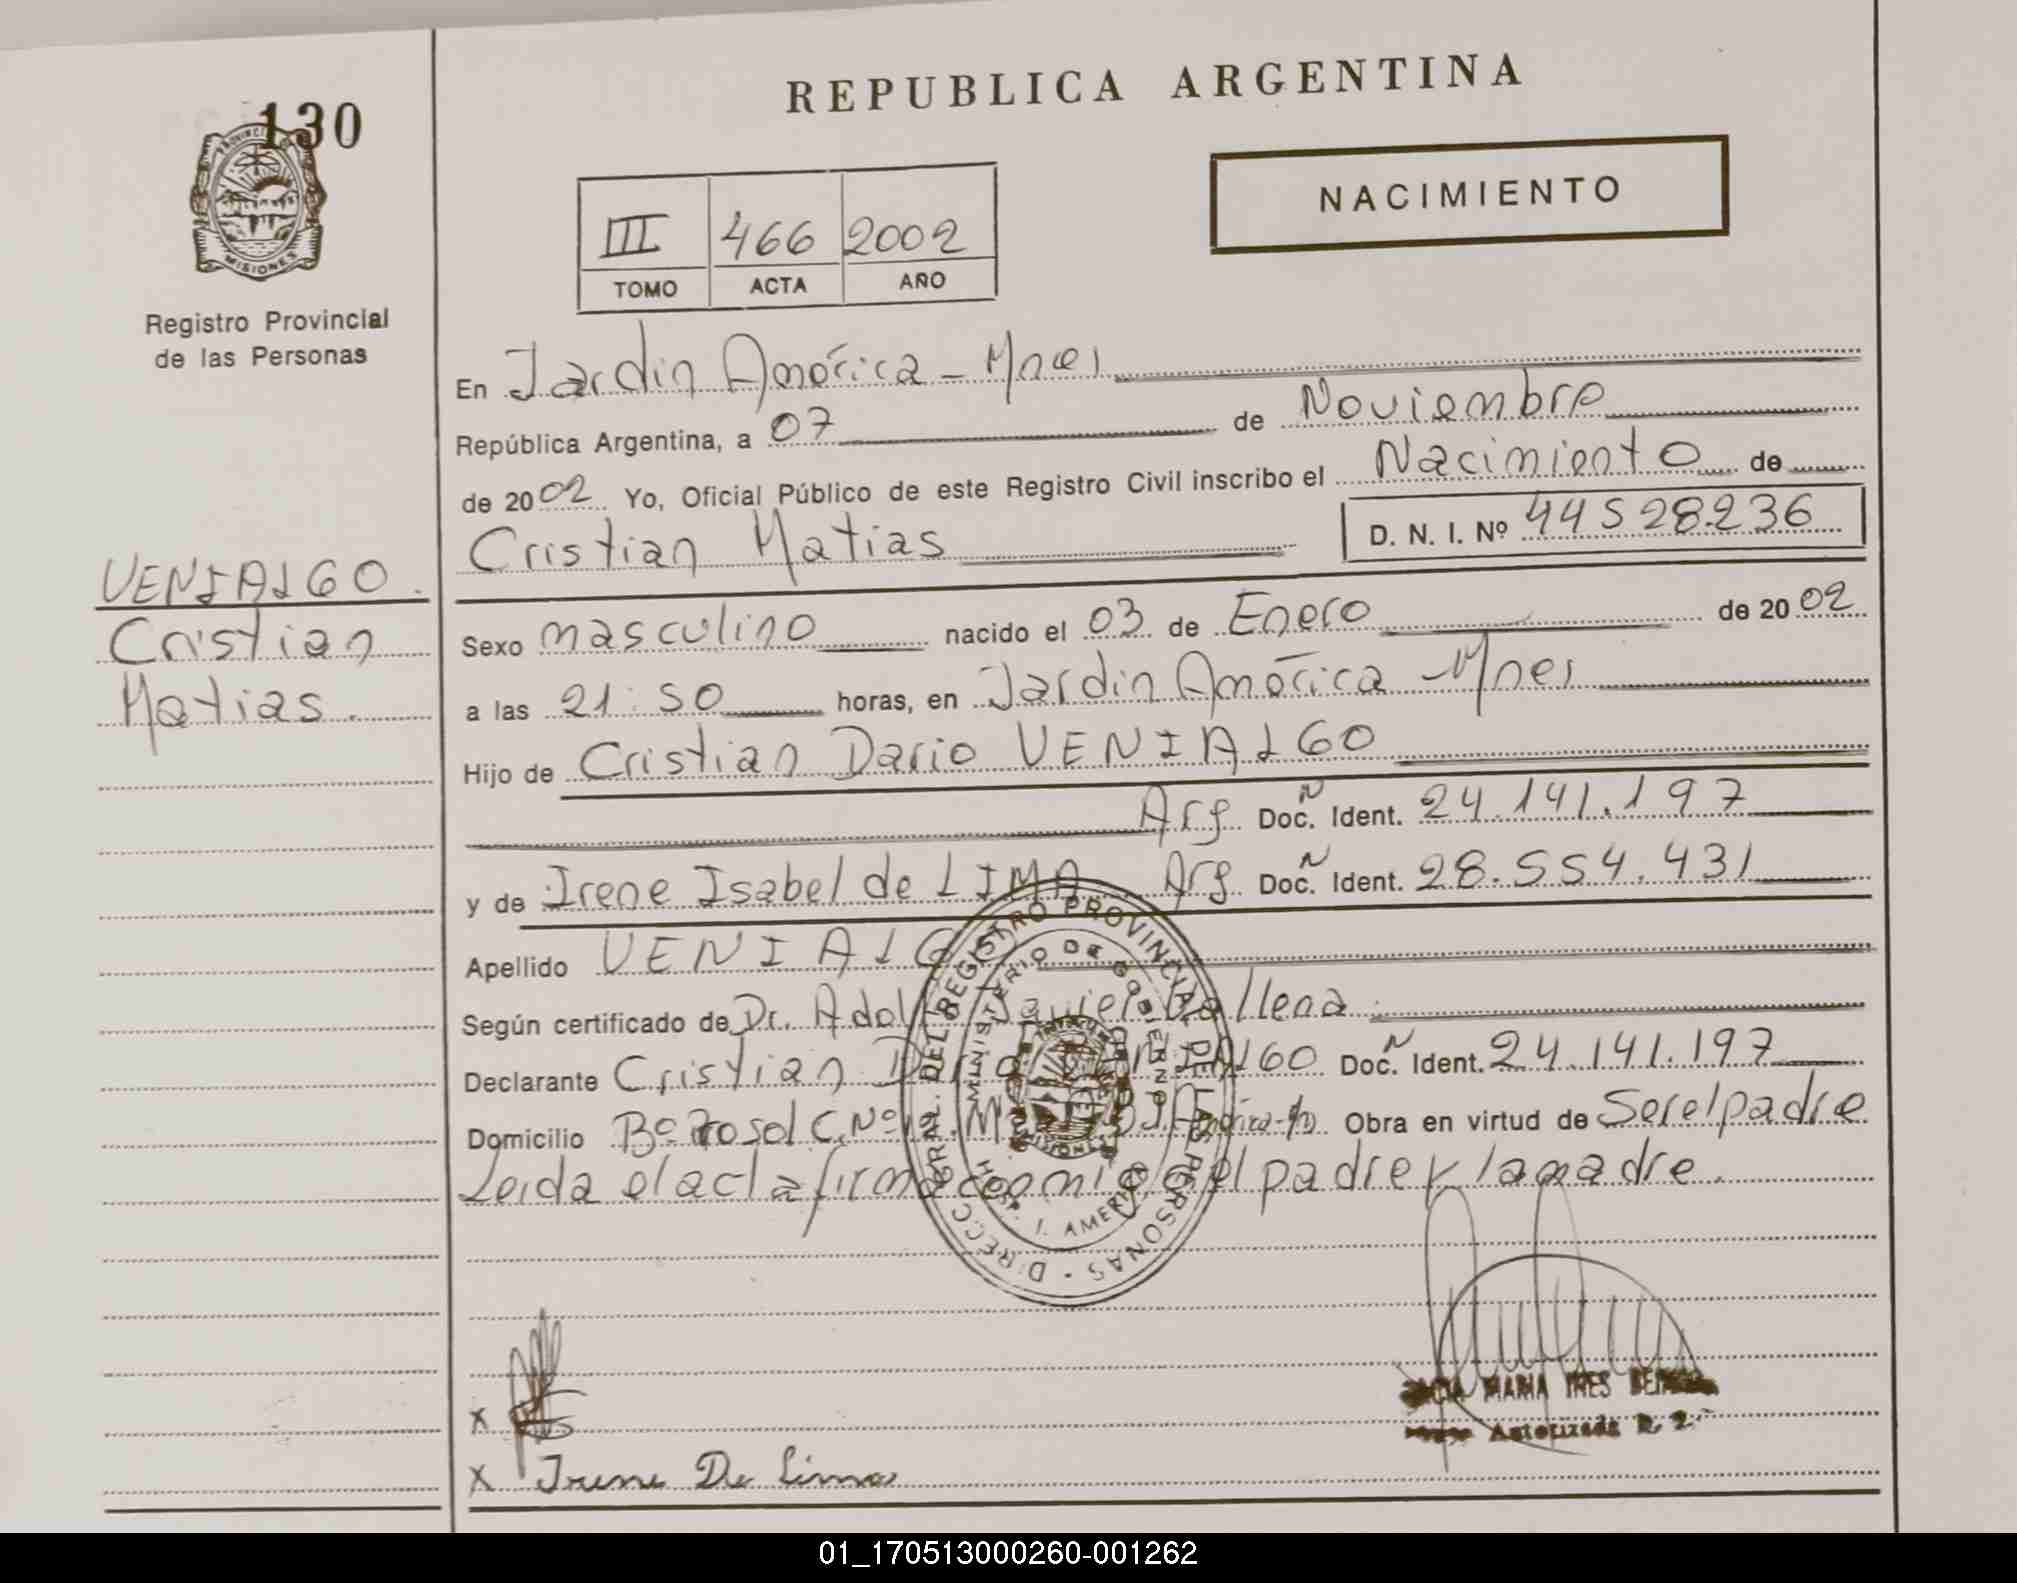 REPUBLICA ARGENTINA
130
PROVINCIA
MISIONES
Registro Provincial
de las Personas
NACIMIENTO
III 466 2002
TOMO ACTA AÑO
En Jardin América - Mnes
República Argentina, a 07 de Noviembre
de 2002 Yo, Oficial Público de este Registro Civil inscribo el Nacimiento de
Cristian Matias D. N. I. Nº 44528.236
VENIALGO.
Cristian
Matias.
Sexo masculino nacido el 03 de Enero de 2002
a las 21:50 horas, en Jardin América - Mnes
Hijo de Cristian Dario VENIALGO
Arg Doc. N Ident. 24.141.197
y de Irene Isabel de LIMA Arg Doc. N Ident. 28.554.431
Apellido VENIALGO
Según certificado de Dr. Javier
Declarante Cristian Dario VENIALGO Doc. N Ident. 24.141.197
Domicilio Bº C. Nº Obra en virtud de Ser el padre
Leida el acta firma conmigo el padre y la madre.
DIRECC. GRAL. DEL REGISTRO PROVINCIAL DE LAS PERSONAS
MINISTERIO DE GOBIERNO
HOSP. J. AMERICA
MARIA INES
Autorizada R. 2
X
X Irene De Lima
01_170513000260-001262